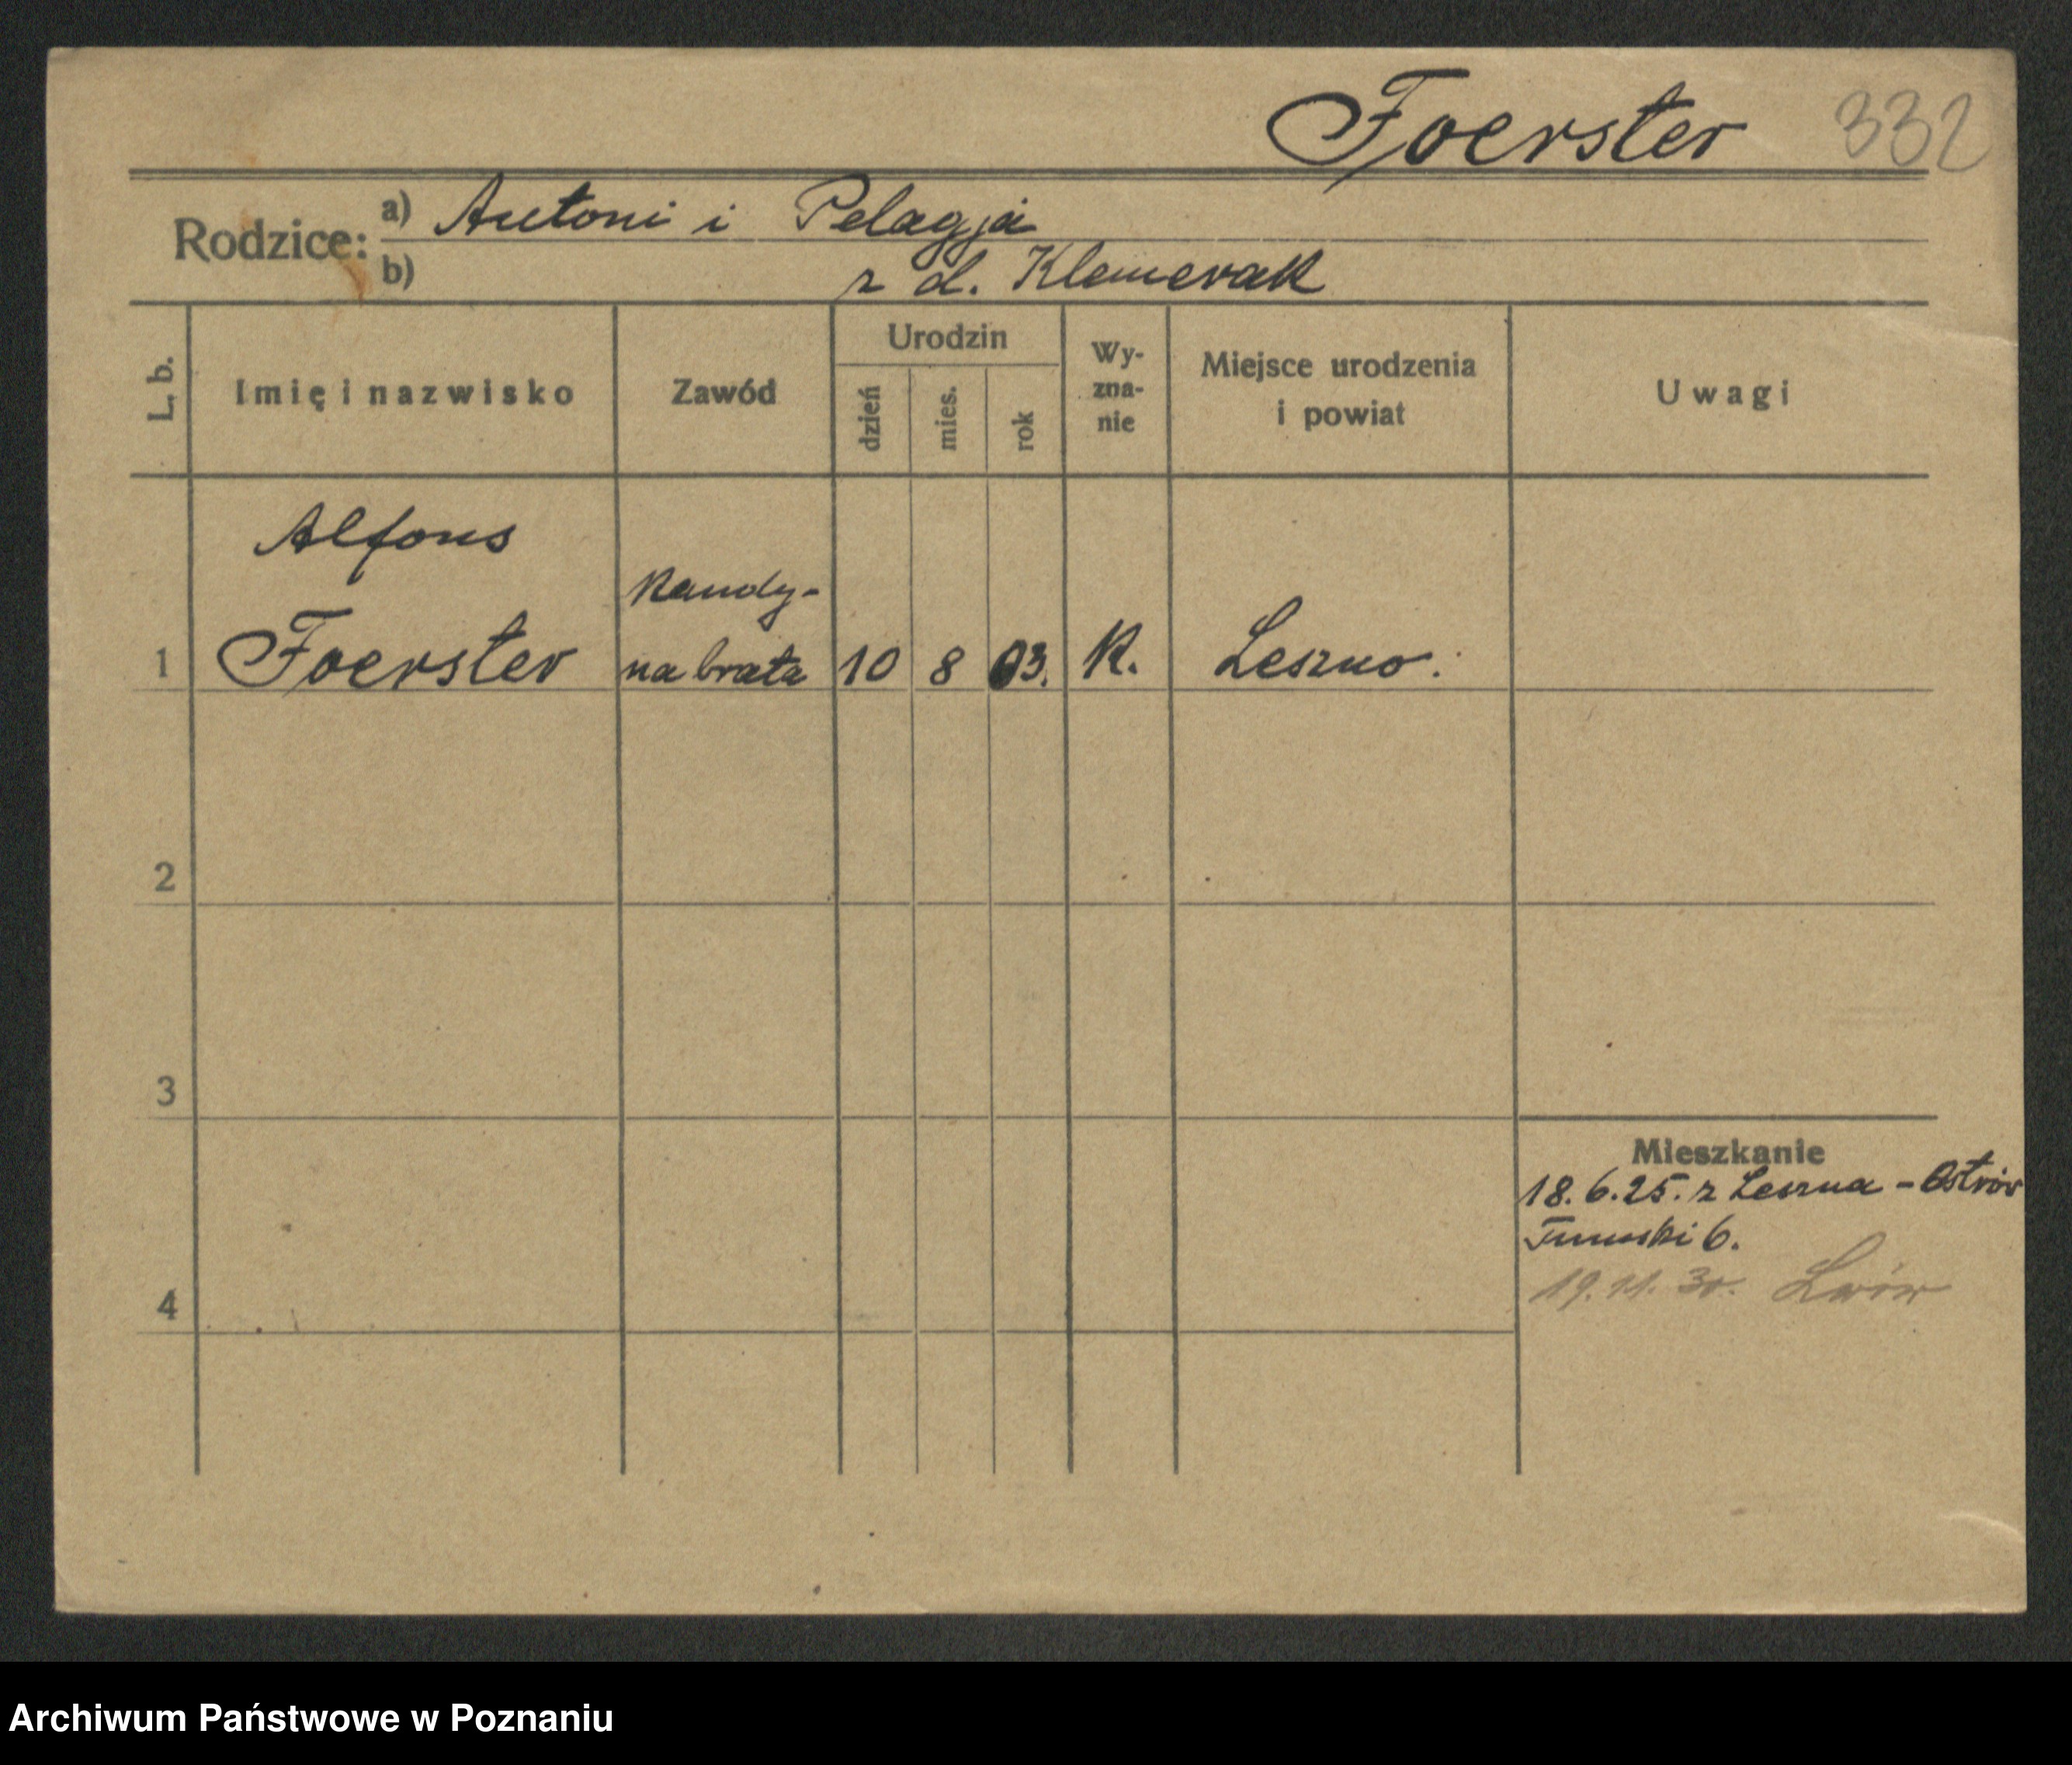 Foerster 332
Rodzice: a) Antoni i Pelagja
b) z d. Klemerak
L. b.
Imię i nazwisko
Zawód
Urodzin
dzień
mies.
rok
Wy-
zna-
nie
Miejsce urodzenia
i powiat
Uwagi
Alfons
Kandy-
1 Foerster na brata 10 8 03. K. Leszno.
2
3
Mieszkanie
18.6.25. z Leszna - Ostrów
Tumski 6.
19.11.30. Lwów
4
Archiwum Państwowe w Poznaniu